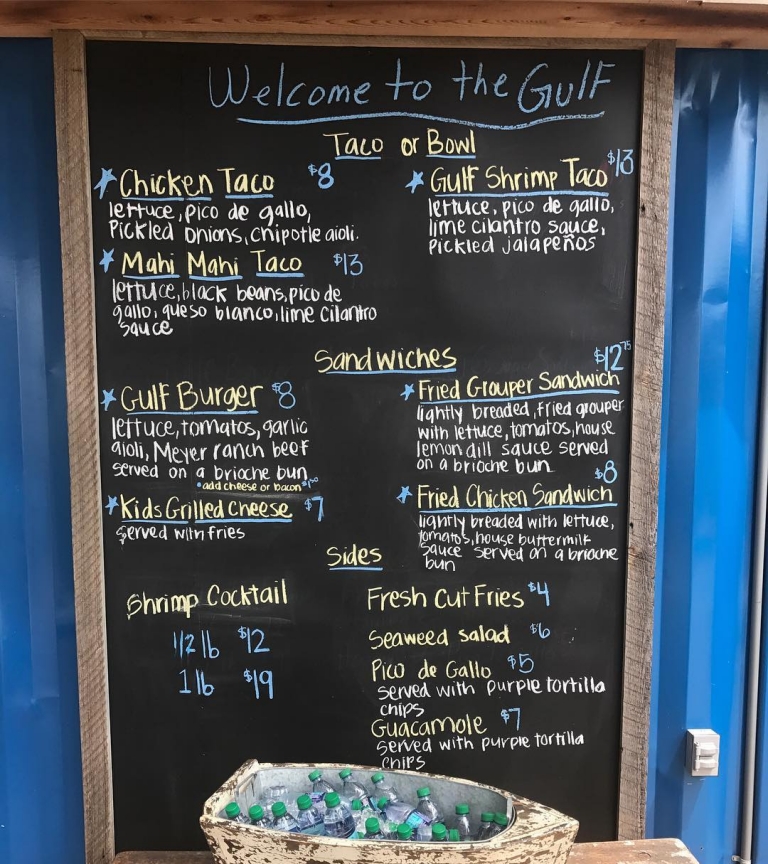 Welcome to the Gulf
Taco or Bowl
Chicken Taco $8
lettuce, pico de gallo,
Pickled Onions, Chipotle aioli.
Mahi Mahi Taco $13
lettuce, black beans, pico de
gallo, queso blanco, lime cilantro
sauce
Gulf Shrimp Taco $13
lettuce, pico de gallo,
lime cilantro sauce,
Pickled jalapeños
Sandwiches
Gulf Burger $8
lettuce, tomatos, garlic
aioli, Meyer ranch beef
served on a brioche bun
•add cheese or bacon
Kids Grilled Cheese $7
served with fries
$12.75
Fried Grouper Sandwich
lightly breaded, fried grouper
with lettuce, tomatos, house
lemon dill sauce served
on a brioche bun
$8
Fried Chicken Sandwich
lightly breaded with lettuce,
tomatos, house buttermilk
sauce served on a brioche
bun
Sides
Shrimp Cocktail
1/2 lb $12
1 lb $19
Fresh Cut Fries $4
Seaweed salad $6
Pico de Gallo $5
served with purple tortilla
chips
Guacamole $7
served with purple tortilla
chips